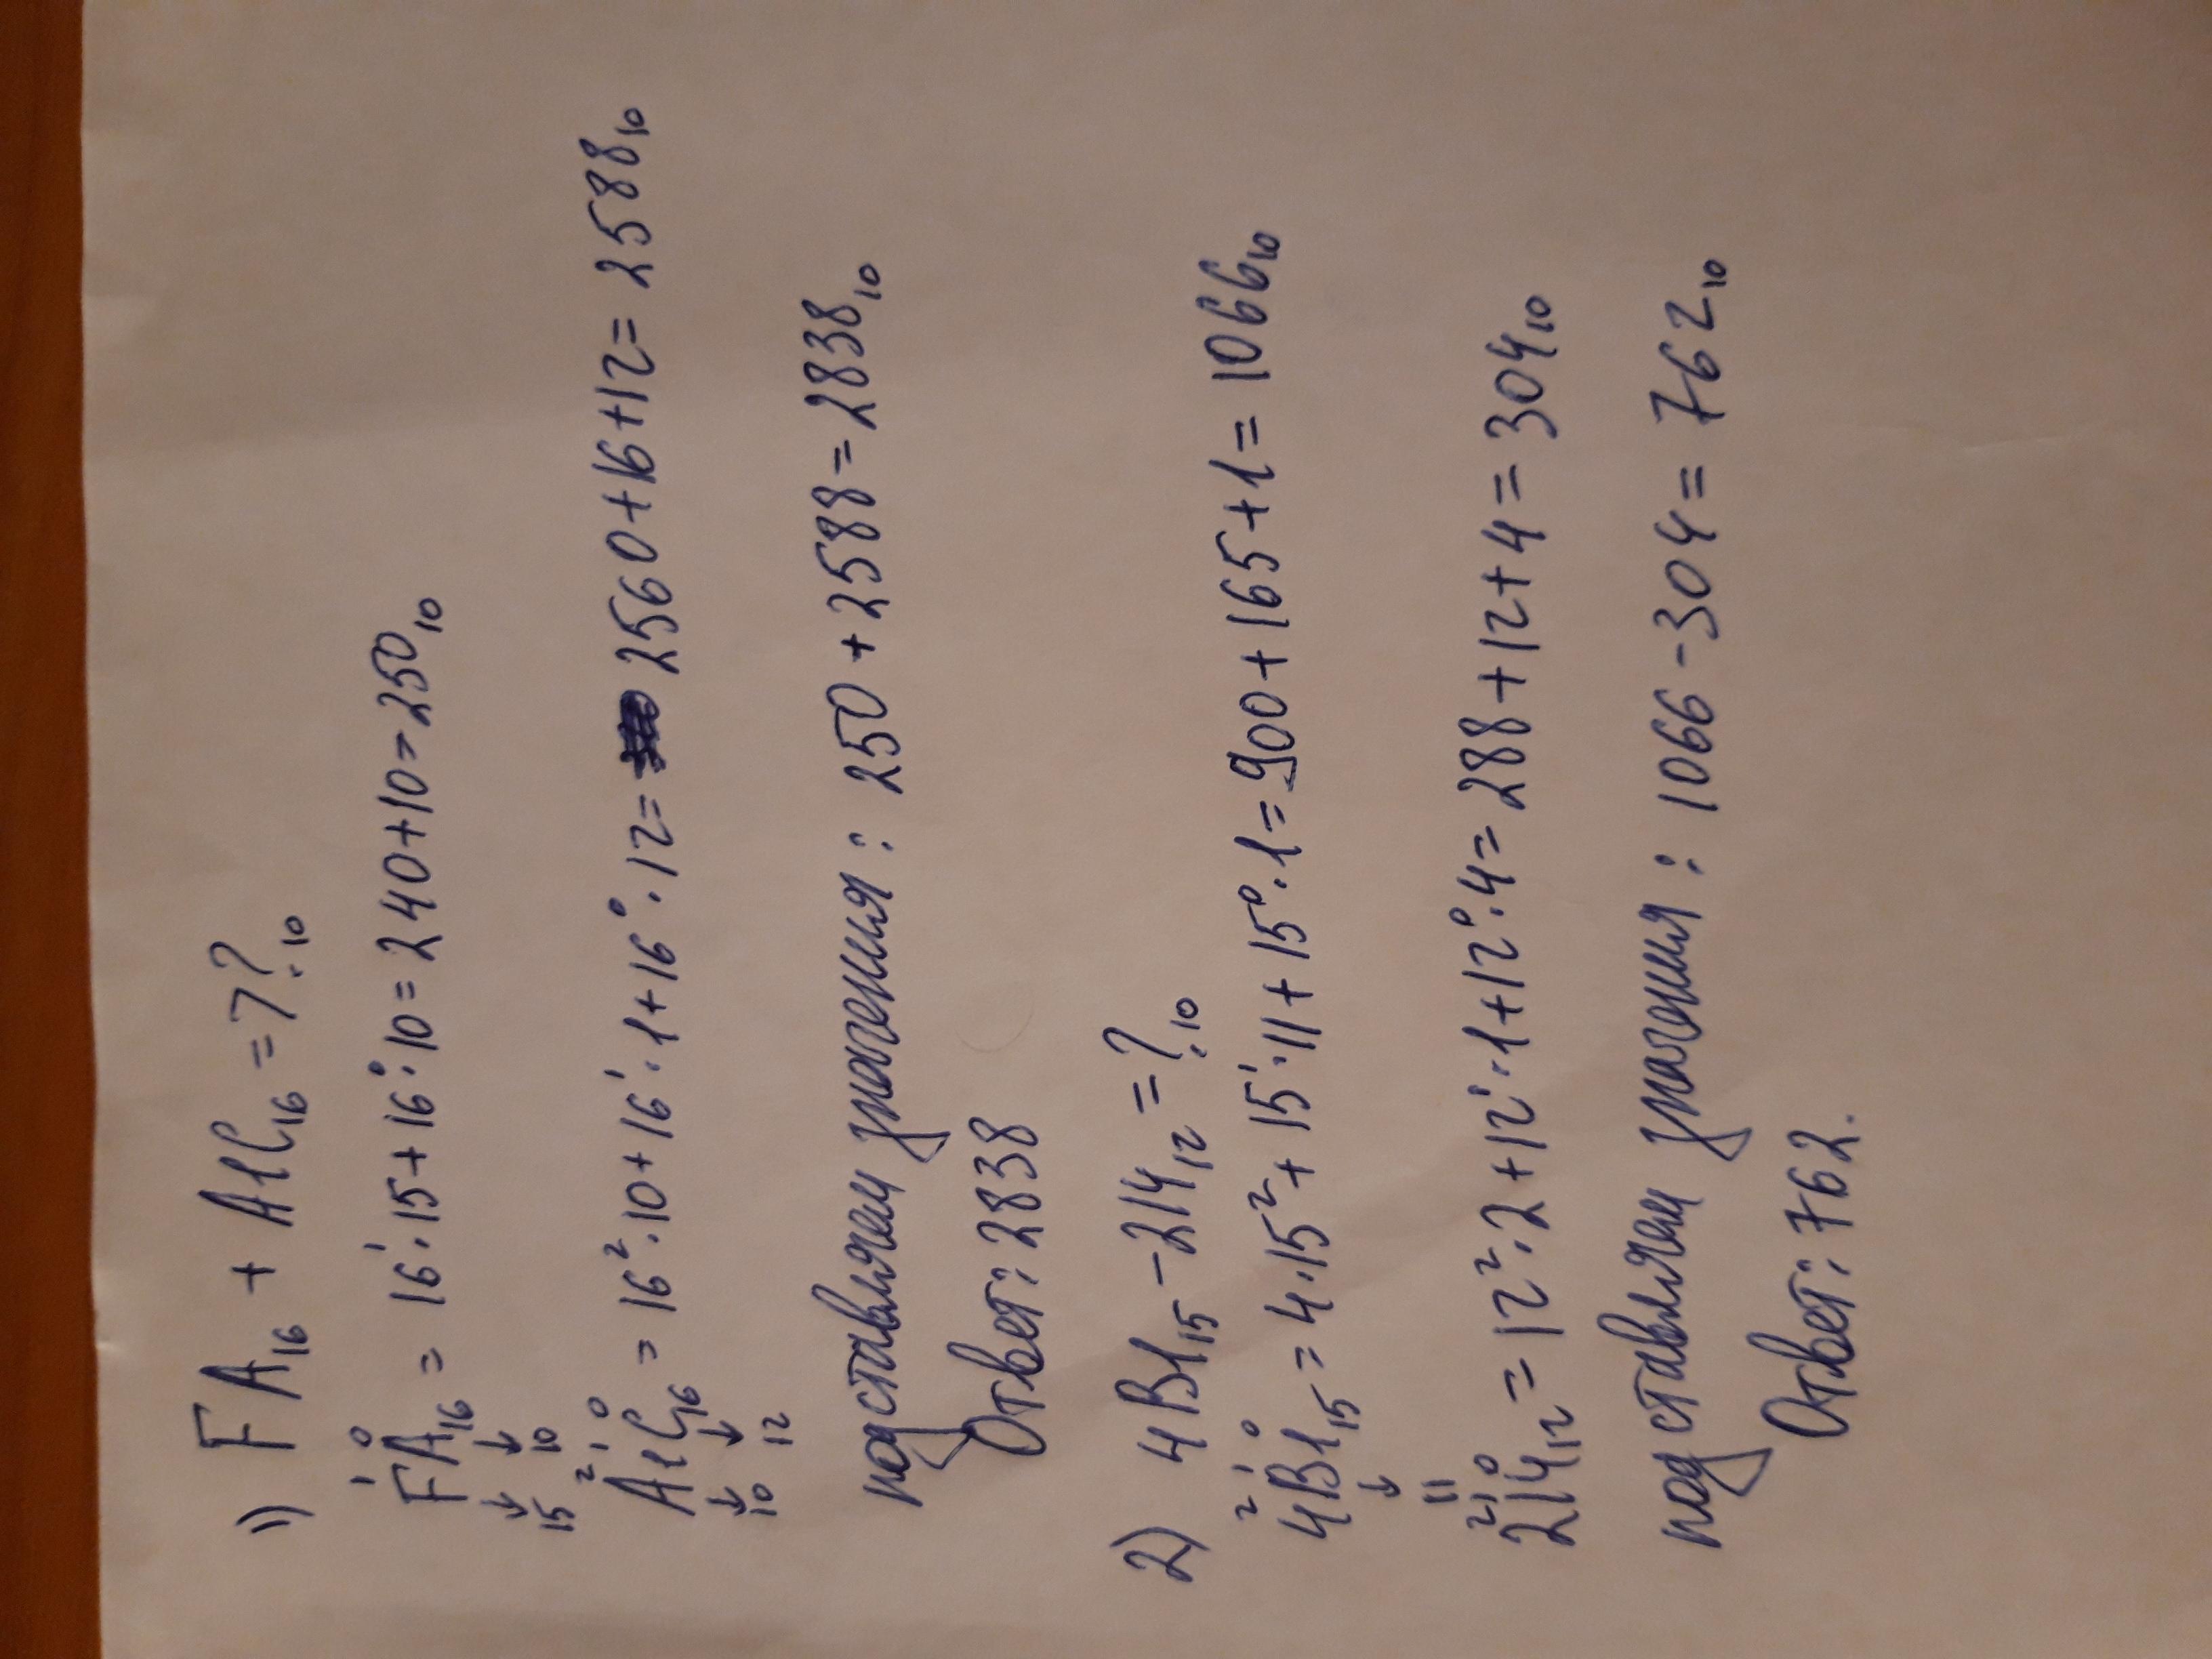 1) FA₁₆ + A1C₁₆ = ?₁₀
1 0
FA₁₆ = 16¹·15+16⁰·10 = 240+10=250₁₀
↓ ↓
15 10
2 1 0
A1C₁₆ = 16²·10+16¹·1+16⁰·12= 2560+16+12= 2588₁₀
↓ ↓
10 12
подставляем значения: 250+2588=2838₁₀
Ответ: 2838
2) 4B1₁₅-214₁₂=?₁₀
2 1 0
4B1₁₅=4·15²+15¹·11+15⁰·1=900+165+1=1066₁₀
↓
11
2 1 0
214₁₂=12²·2+12¹·1+12⁰·4=288+12+4=304₁₀
подставляем значения: 1066-304=762₁₀
Ответ: 762.